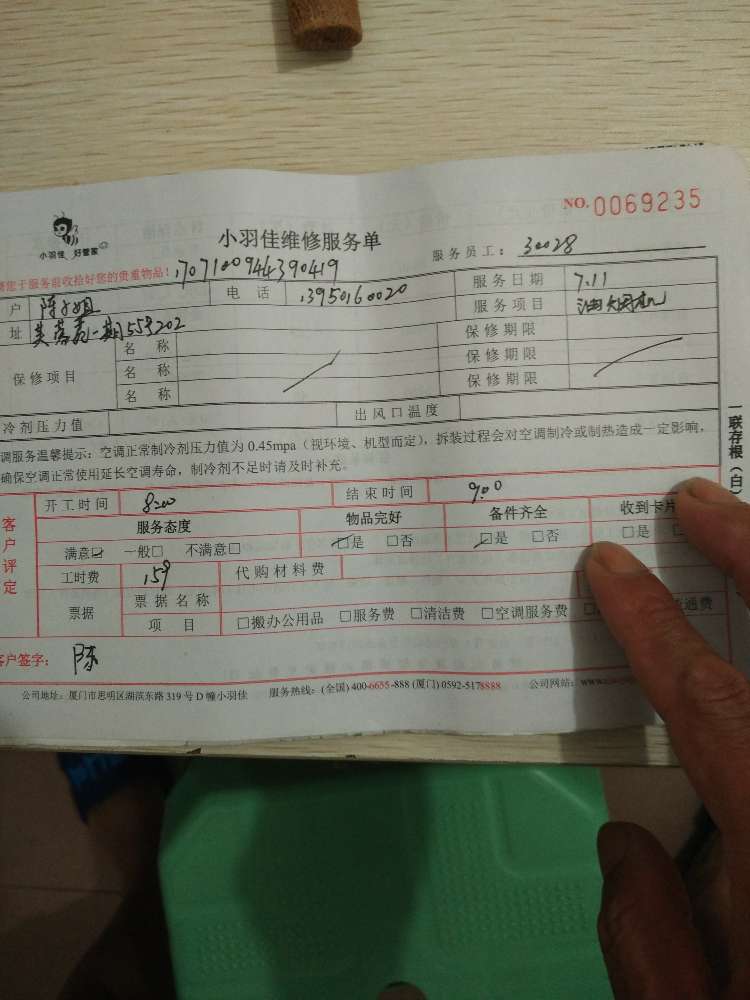 NO. 0069235
小羽佳 好管家
小羽佳维修服务单
服务员工： 30028
您于服务前收拾好您的贵重物品！ 1707100944390419
户 陈小姐 电 话 13950160020 服 务 日 期 7.11
址 芙蓉苑一期 559202 服 务 项 目 油烟机
保 修 项 目 名 称 保 修 期 限
名 称 保 修 期 限
名 称 保 修 期 限
冷 剂 压 力 值 出 风 口 温 度
调服务温馨提示：空调正常制冷剂压力值为 0.45mpa（视环境、机型而定），拆装过程会对空调制冷或制热造成一定影响，
确保空调正常使用延长空调寿命，制冷剂不足时请及时补充。
一联存根（白）
客户评定
开 工 时 间 8:00 结 束 时 间 9:00
服务态度 物品完好 备件齐全 收到卡片
满意☑ 一般□ 不满意□ ☑是 □否 ☑是 □否 □是
工时费 159 代 购 材 料 费
票据 票 据 名 称
项 目 □搬办公用品 □服务费 □清洁费 □空调服务费 通费
客户签字： 陈
公司地址：厦门市思明区湖滨东路 319 号 D 幢小羽佳 服务热线：(全国) 400-6655-888 (厦门) 0592-5178888 公司网站：www.